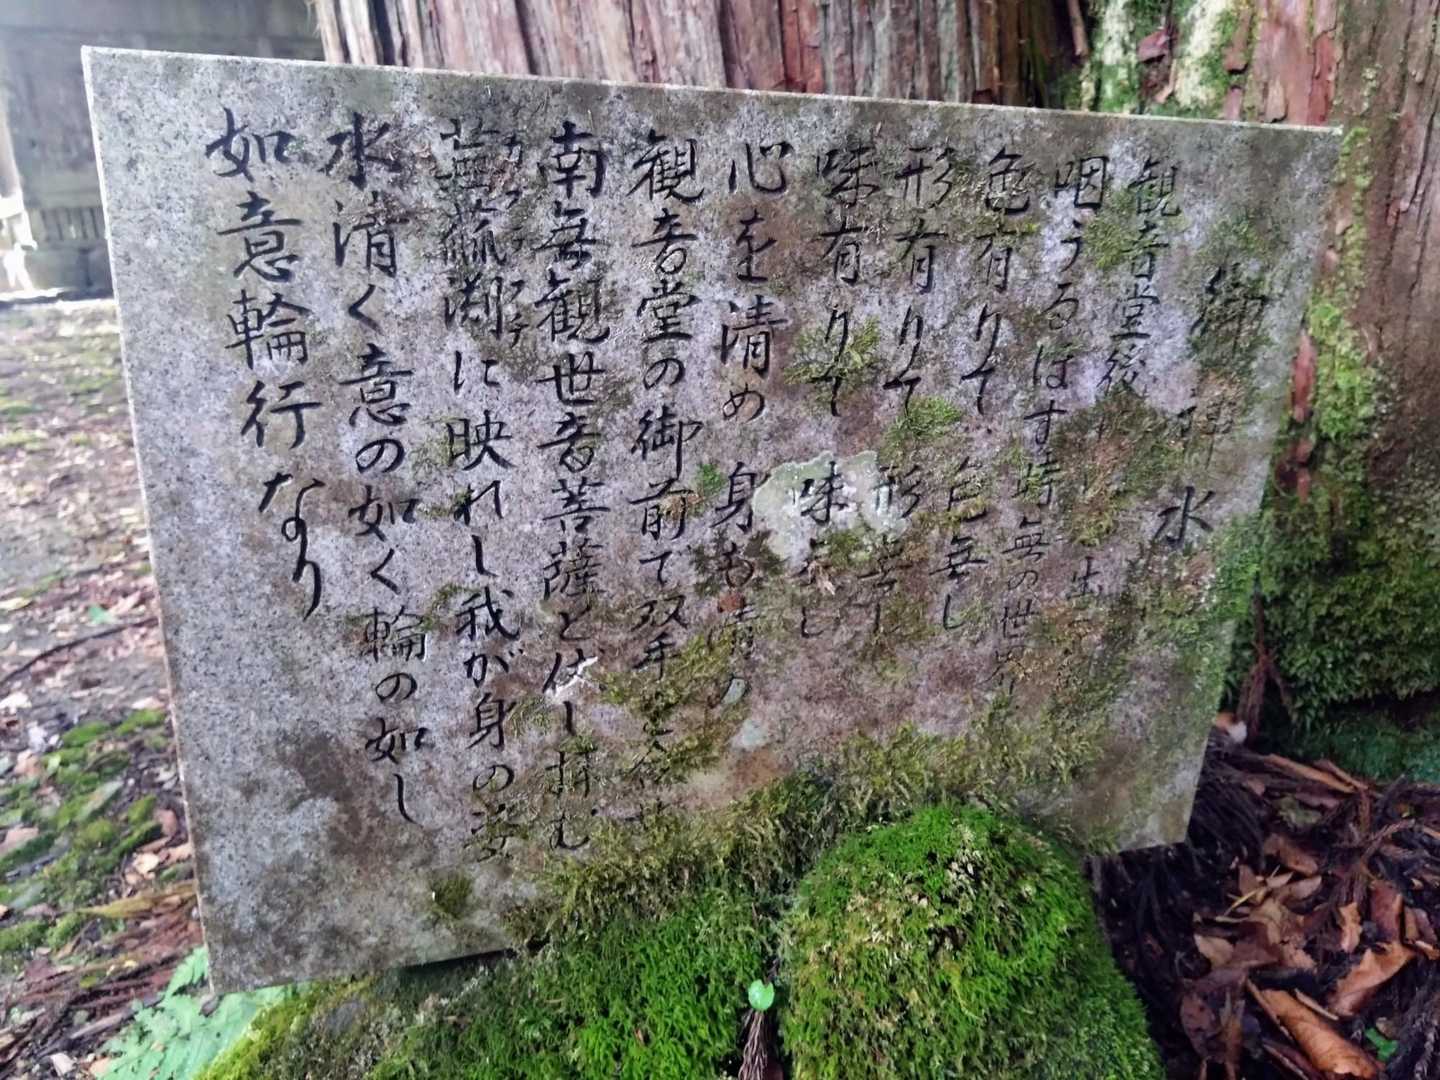 御神水
観音堂後
咽うるほす時無の世界
色有りて 色無し
形有りて 形無し
味有りて 味無し
心を清め 身も清め
観音堂の御前で双手
南無観世音菩薩と伏し拝む
蕪蔬渕に映れし我が身の姿
カブソブチ
水清く意の如く輪の如し
如意輪行なり